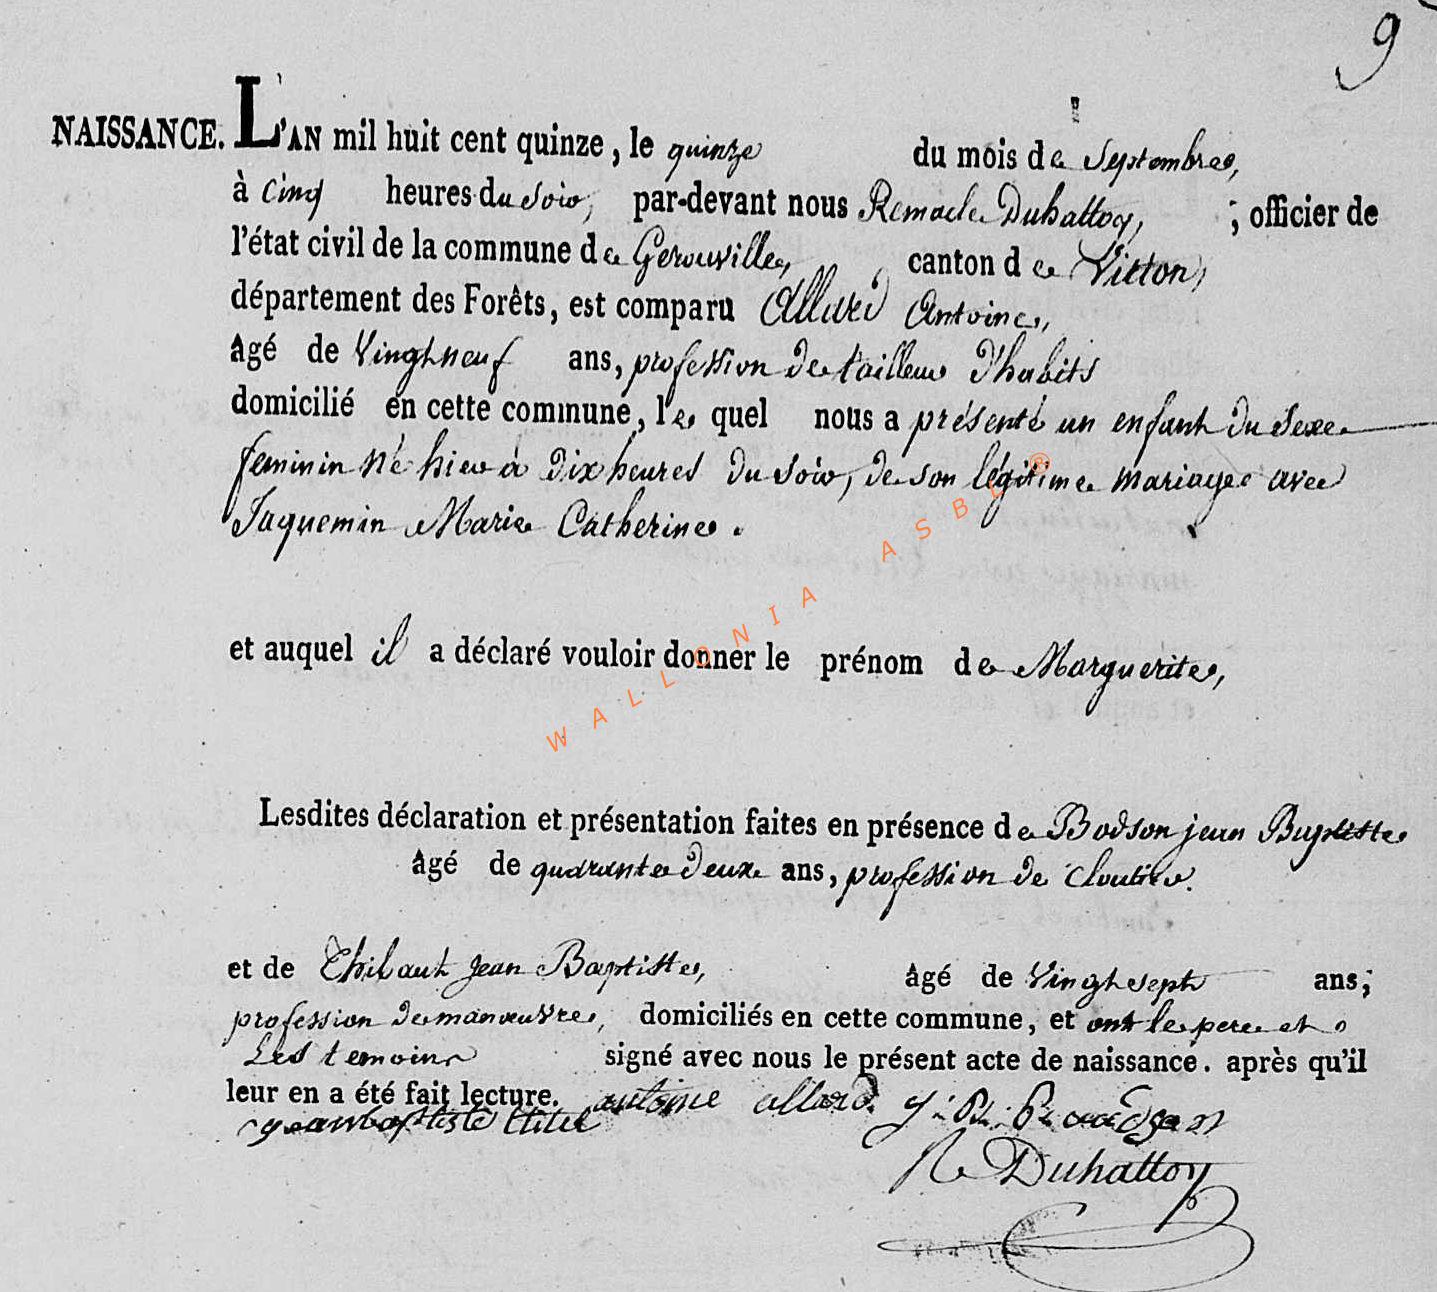 9
NAISSANCE. L'AN mil huit cent quinze, le quinze du mois de Septembre,
à Cinq heures du soir, par-devant nous Remacle Duhattoy, ; officier de
l'état civil de la commune de Gerouville, canton de Virton,
département des Forêts, est comparu Allard Antoine,
âgé de Vingt neuf ans, profession de tailleur d'habits
domicilié en cette commune, le quel nous a présenté un enfant du Sexe
feminin né hier à dix heures du soir, de son légitime mariage avec
Jaquemin Marie Catherine.
et auquel il a déclaré vouloir donner le prénom de Marguerite,
WALLONIA ASBL ®
Lesdites déclaration et présentation faites en présence de Bodson jean Baptiste
âgé de quarante deux ans, profession de Cloutier.
et de Thibaut Jean Baptiste, âgé de Vingt sept ans;
profession de manoeuvre, domiciliés en cette commune, et ont le pere et
Les temoins signé avec nous le présent acte de naissance. après qu'il
leur en a été fait lecture. antoine allard
R Duhattoy